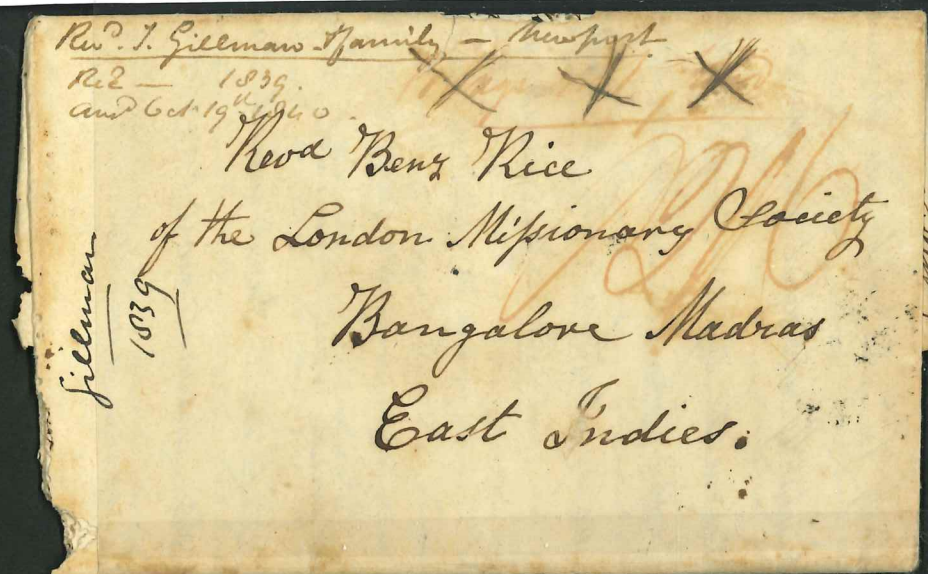 Revd. J. Gillman & family — Newport
Recd — 1839.
and Oct 19th 1840.
Revd Benj Rice
of the London Missionary Society
Bangalore Madras
East Indies.
Gillman
1839